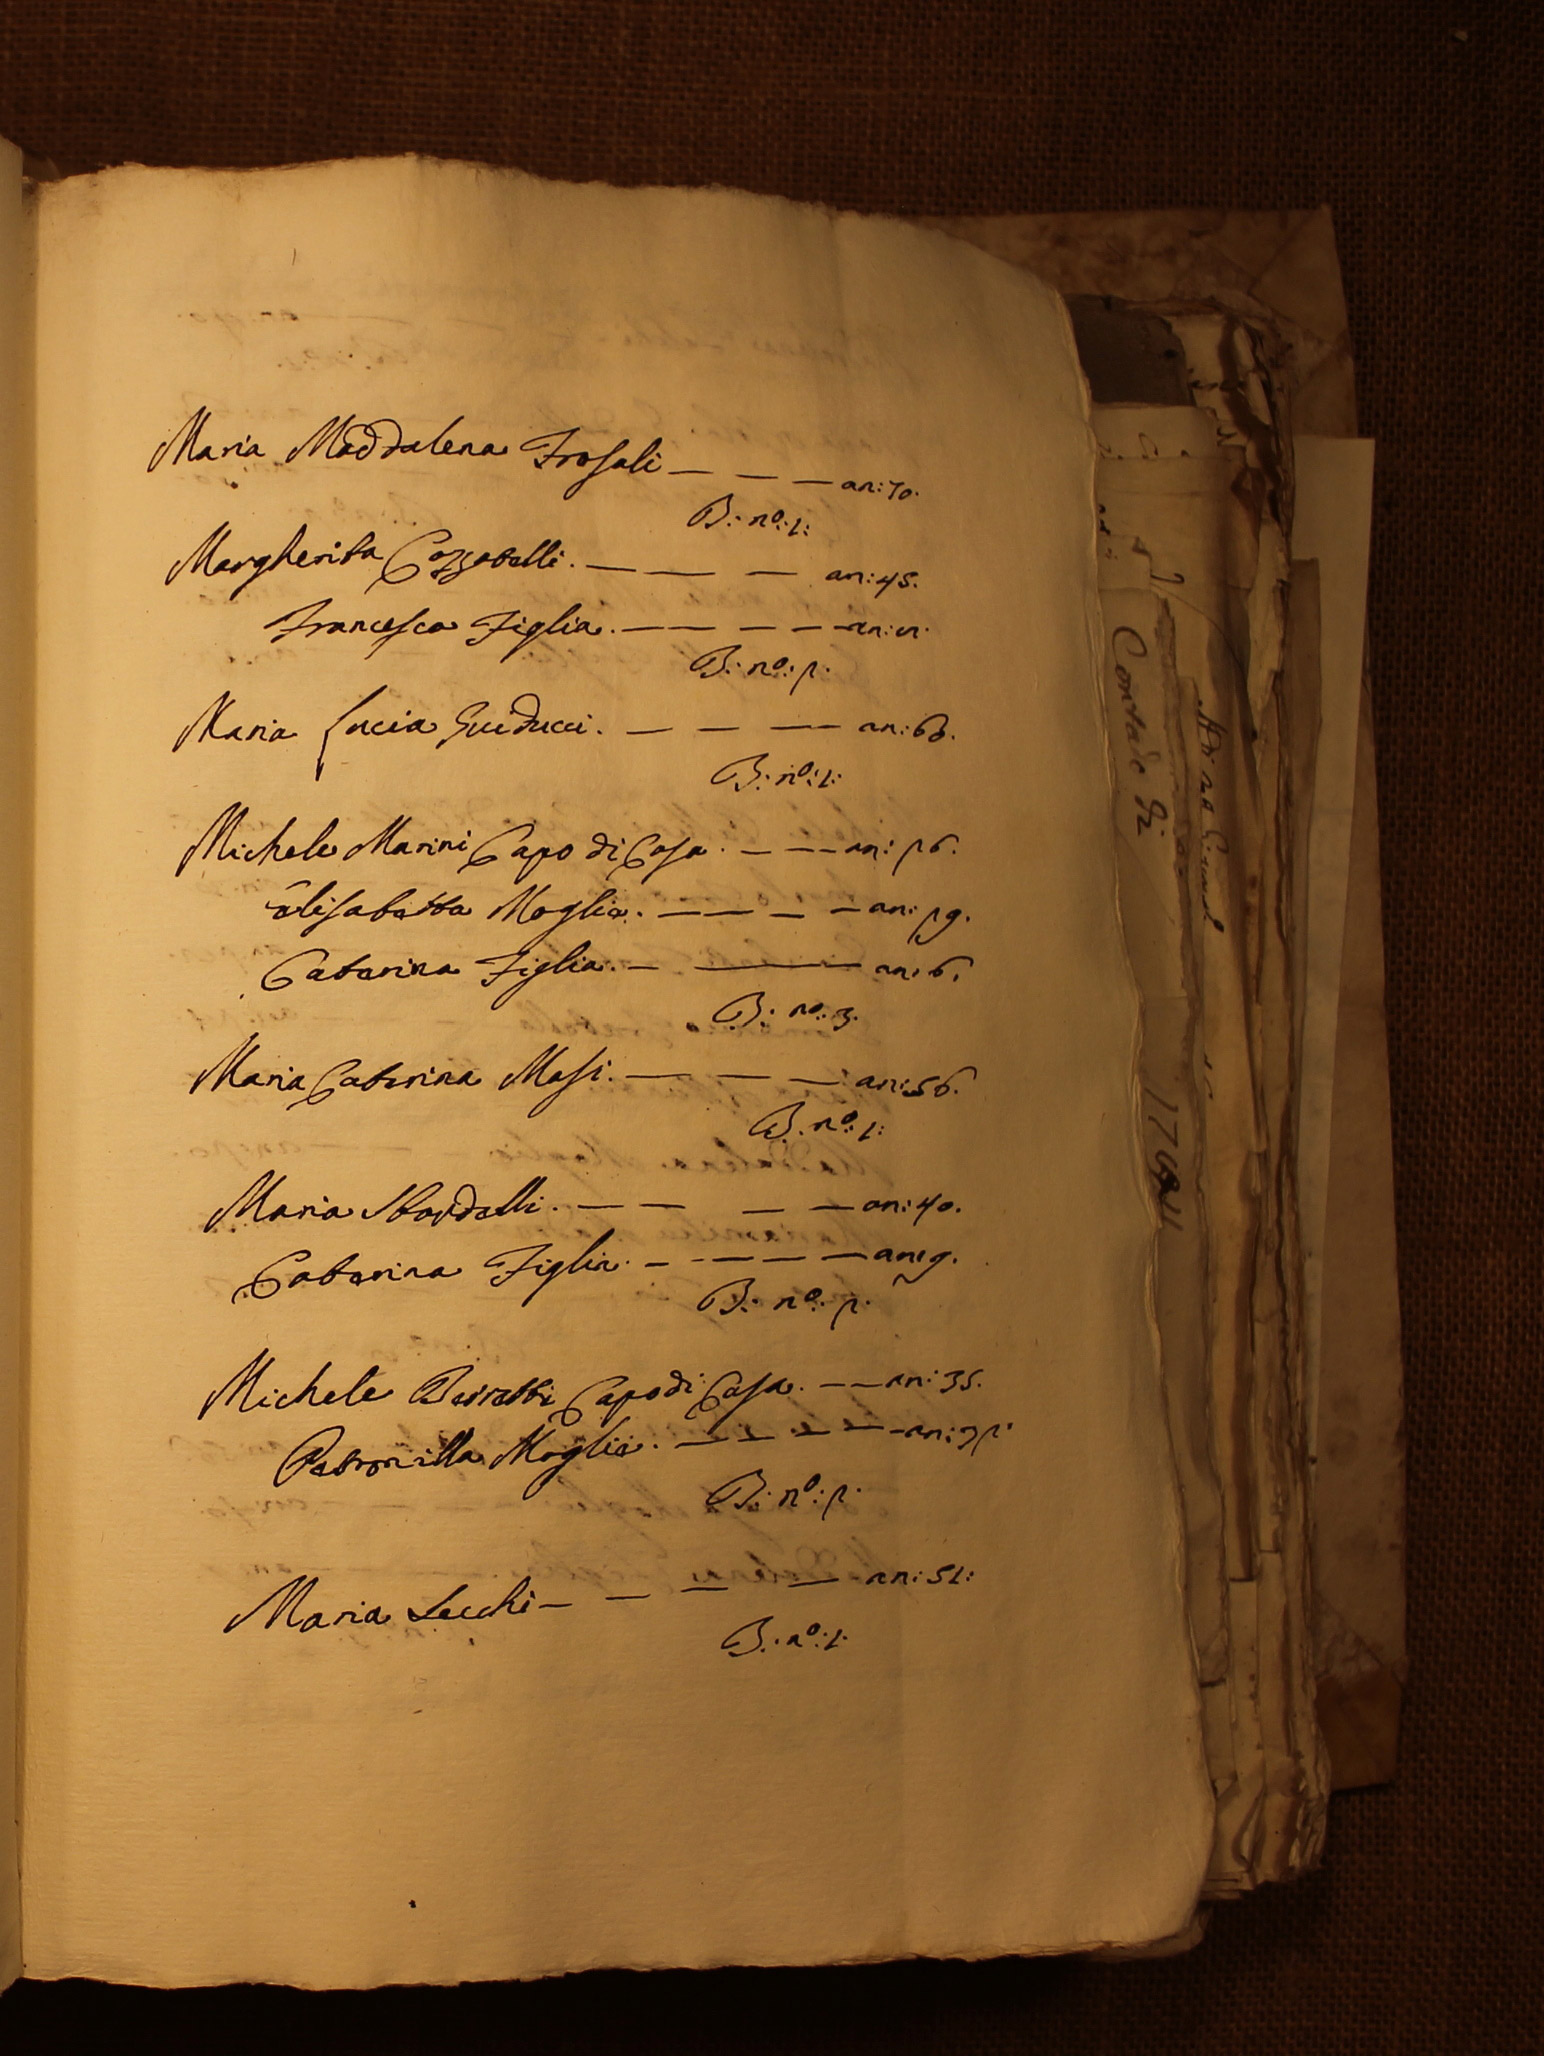 Maria Maddalena Frosali — — — an: 70.
B: nº: 1:
Margherita Cozzatelli. — — — an: 45.
Francesca Figlia. — — — — an:
B: nº: 2.
Maria Lucia Guiducci. — — — an: 66.
B: nº: 1:
Michele Marini Capo di Casa. — — an: 26.
Elisabetta Moglia. — — — — an: 29.
Catarina Figlia. — — an: 6.
B: nº: 3.
Maria Catarina Masi. — — — an: 56.
B: nº: 1:
Maria Stardelli. — — — — an: 40.
Catarina Figlia. — — — — an: 9.
B: nº: 2.
Michele Capo di Casa. — — an: 35.
Petronilla Moglia. — — — — an: 32.
B: nº: 2.
Maria Lecchi — — — — an: 51:
B: nº: 1.
Contado di